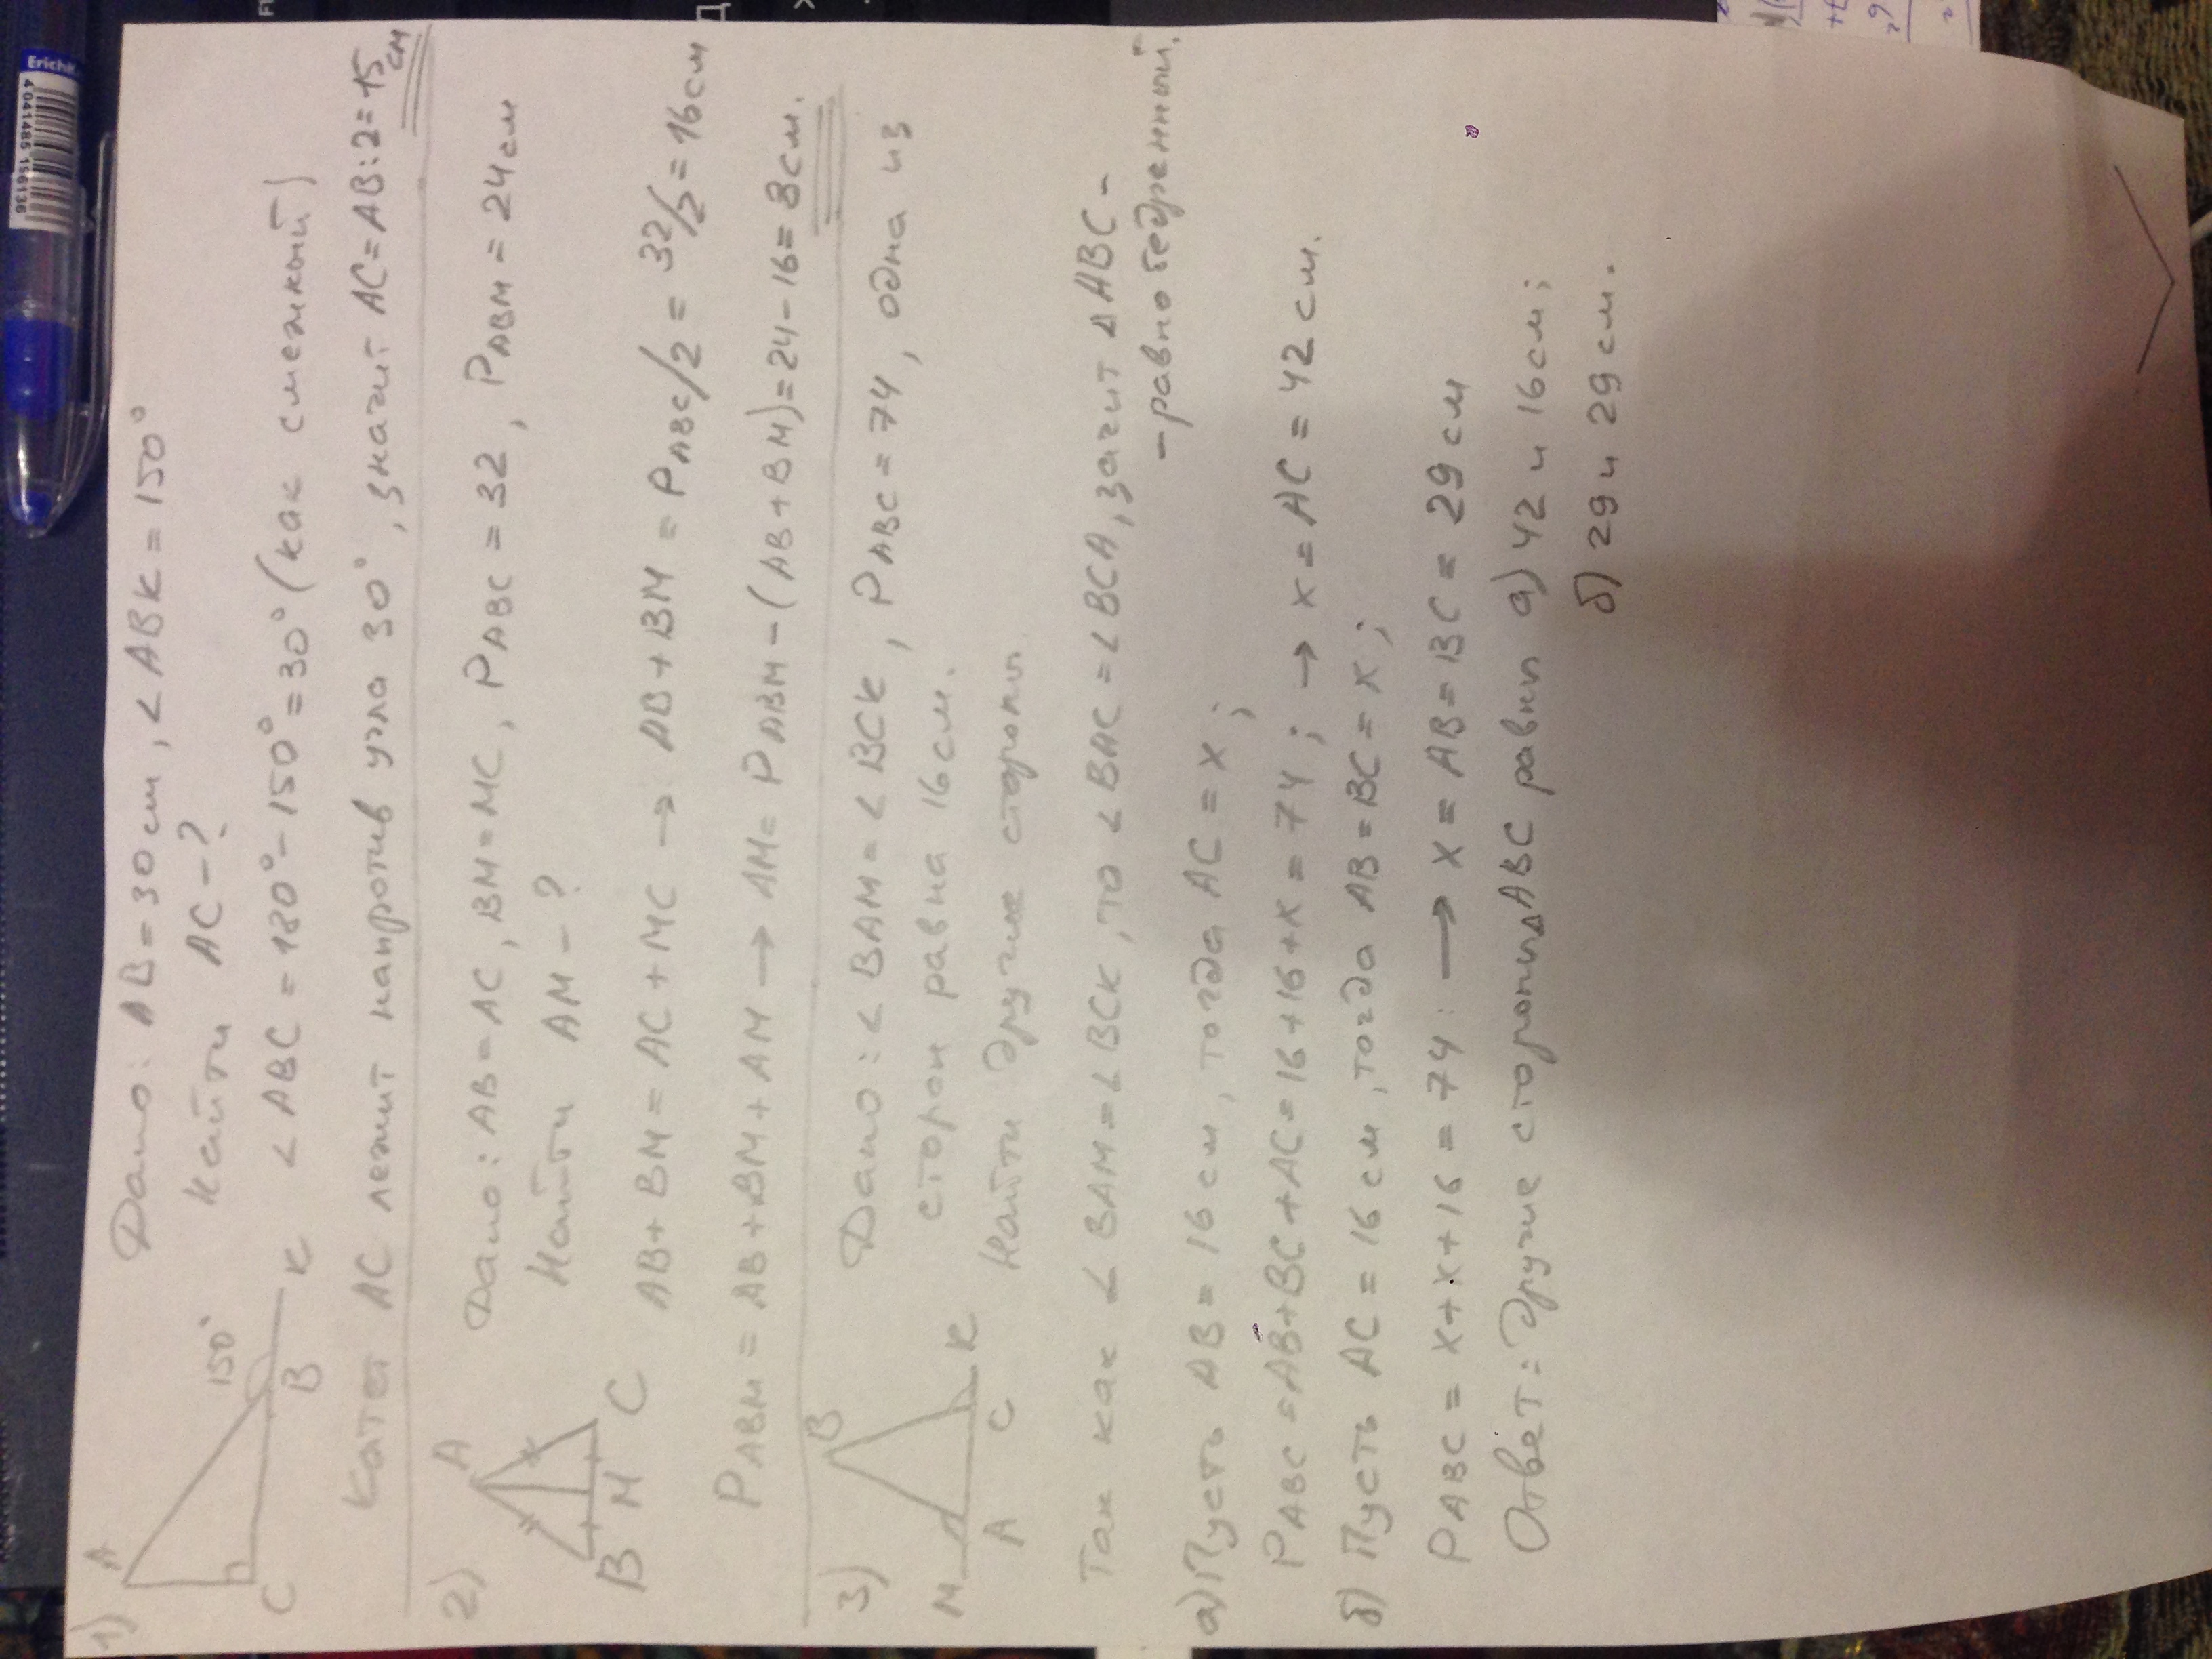 1)
A
150°
C
B
K
Дано: AB = 30 см, < ABK = 150°
Найти AC - ?
< ABC = 180° - 150° = 30° (как смежный)
Катет AC лежит напротив угла 30°, значит AC = AB : 2 = 15 см
2)
A
B
M
C
Дано: AB = AC, BM = MC, PABC = 32, PABM = 24 см
Найти AM - ?
AB + BM = AC + MC → AB + BM = PABC/2 = 32/2 = 16 см
PABM = AB + BM + AM → AM = PABM - (AB + BM) = 24 - 16 = 8 см.
3)
B
M
A
C
K
Дано: < BAM = < BCK, PABC = 74, одна из
сторон равна 16 см.
Найти другие стороны.
Так как < BAM = < BCK, то < BAC = < BCA, зачит Δ ABC -
- равнобедренный.
а) Пусть AB = 16 см, тогда AC = x;
PABC = AB + BC + AC = 16 + 16 + x = 74; → x = AC = 42 см.
б) Пусть AC = 16 см, тогда AB = BC = x;
PABC = x + x + 16 = 74: → x = AB = BC = 29 см
Ответ: другие стороны Δ ABC равны а) 42 и 16 см;
б) 29 и 29 см.
Erich
4 041485 156136